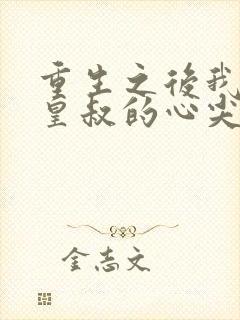 重生之後我
皇叔的心尖
金志文